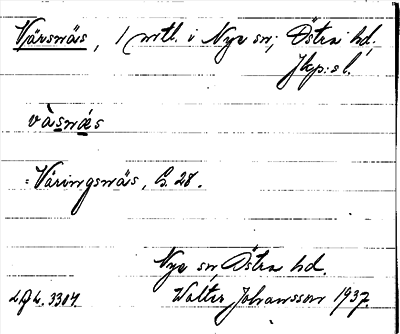 Vjärsnäs, 1 mtl. i Nye sn, Östra hd,
Jkp:s l.
väsnäs
= Väringsnäs, G. 28.
Nye sn, Östra hd.
Walter Johansson 1937.